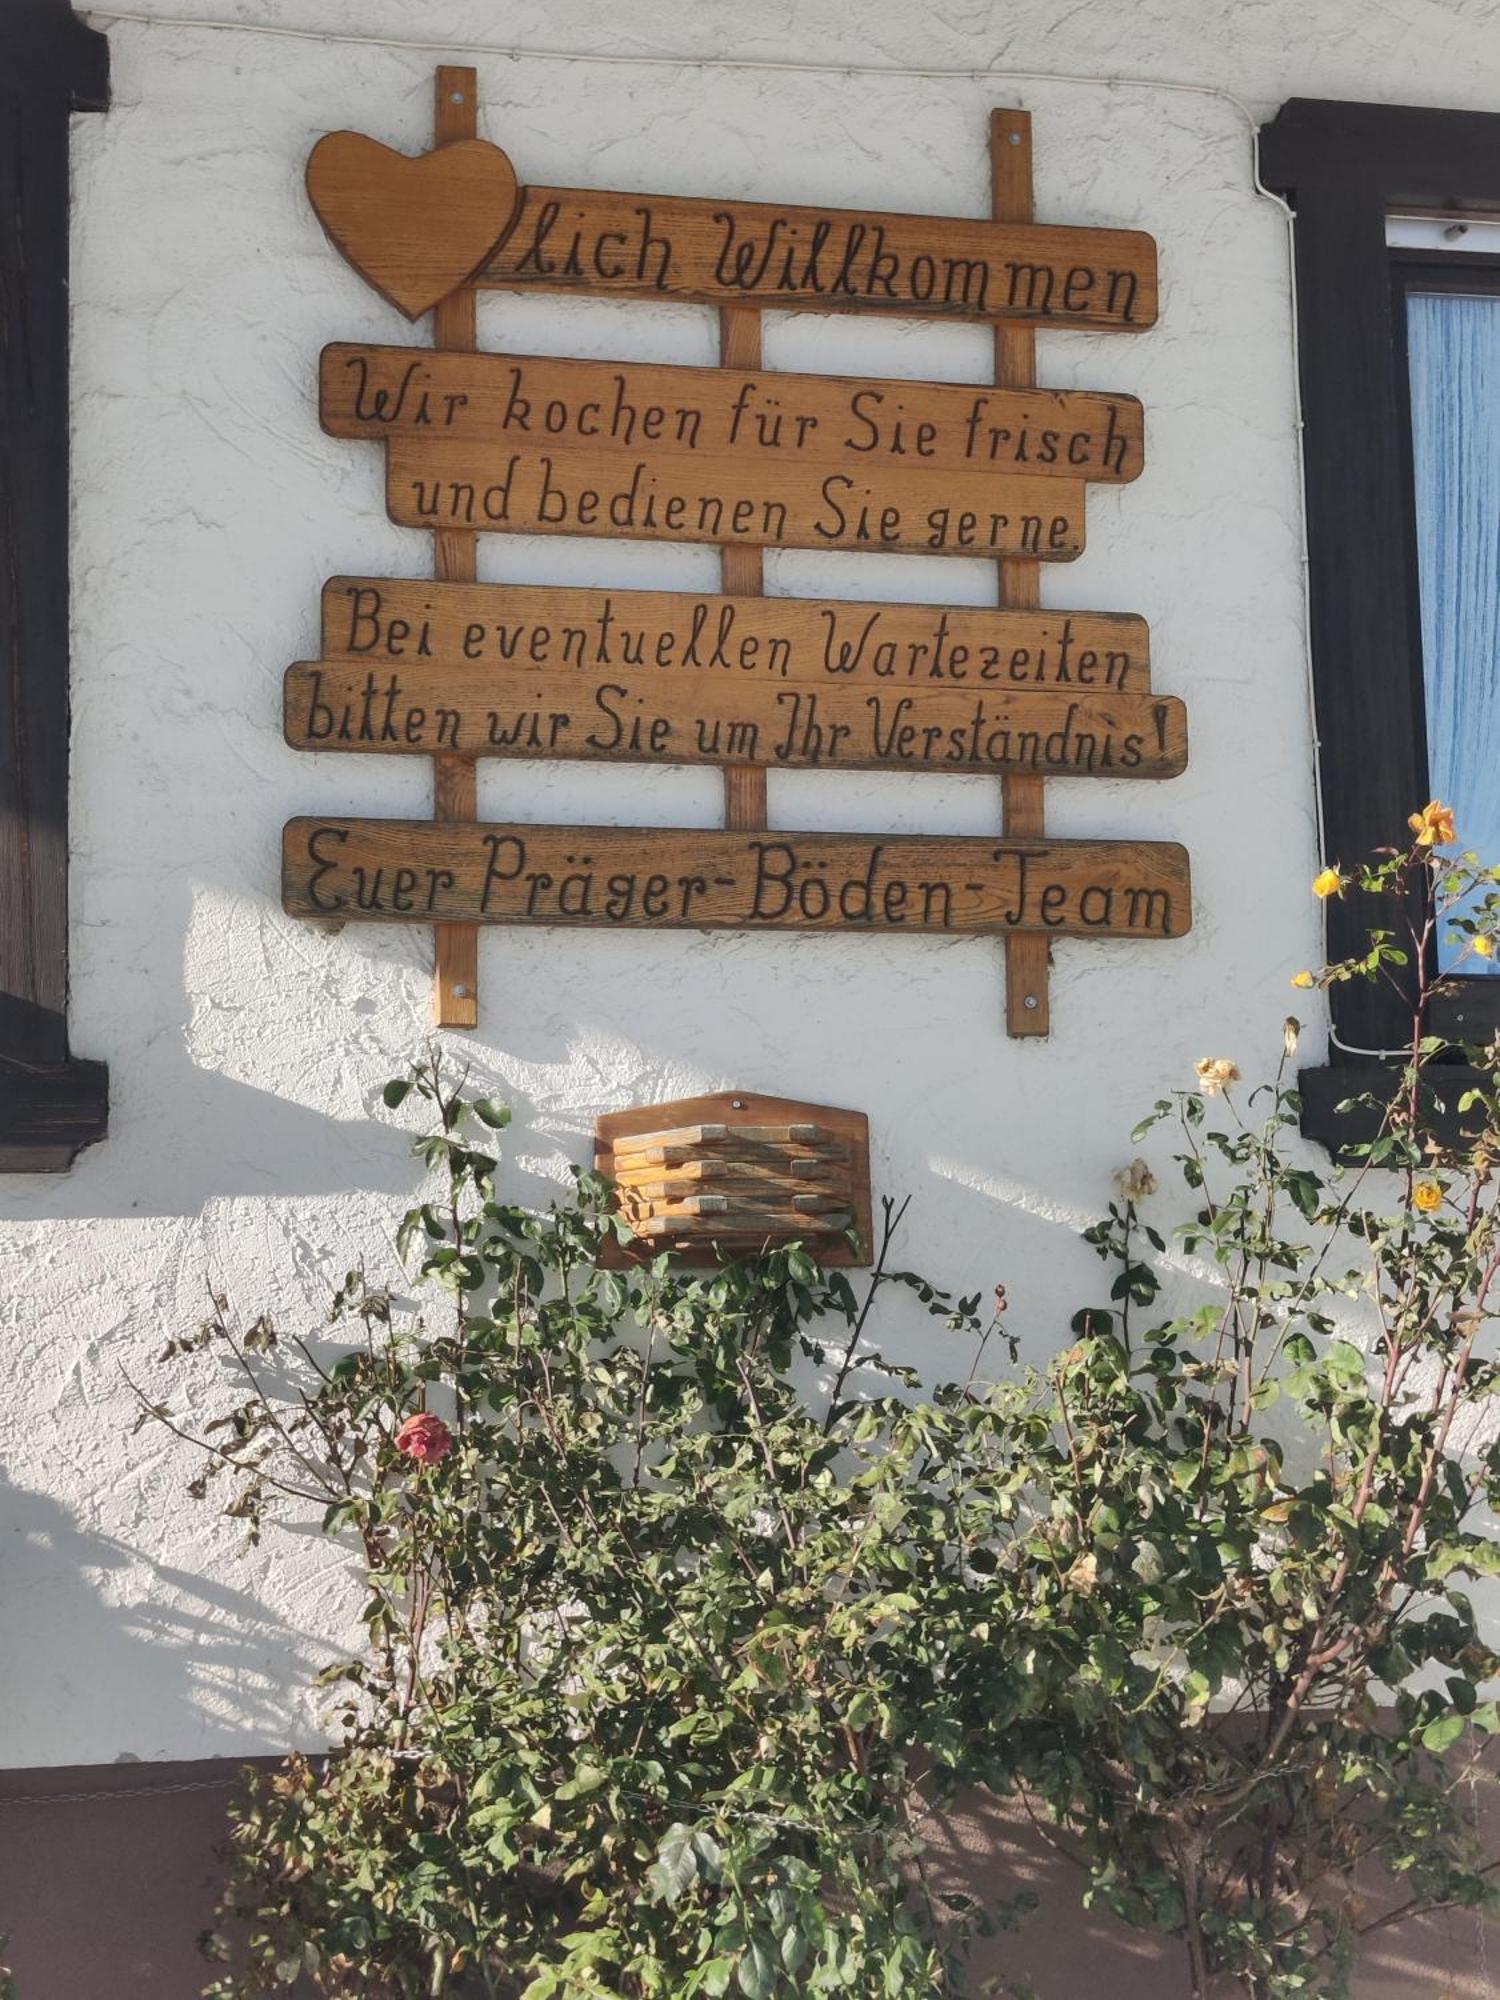 lich Willkommen
Wir kochen für Sie frisch
und bedienen Sie gerne.
Bei eventuellen Wartezeiten
bitten wir Sie um Ihr Verständnis!
Euer Präger-Böden-Team